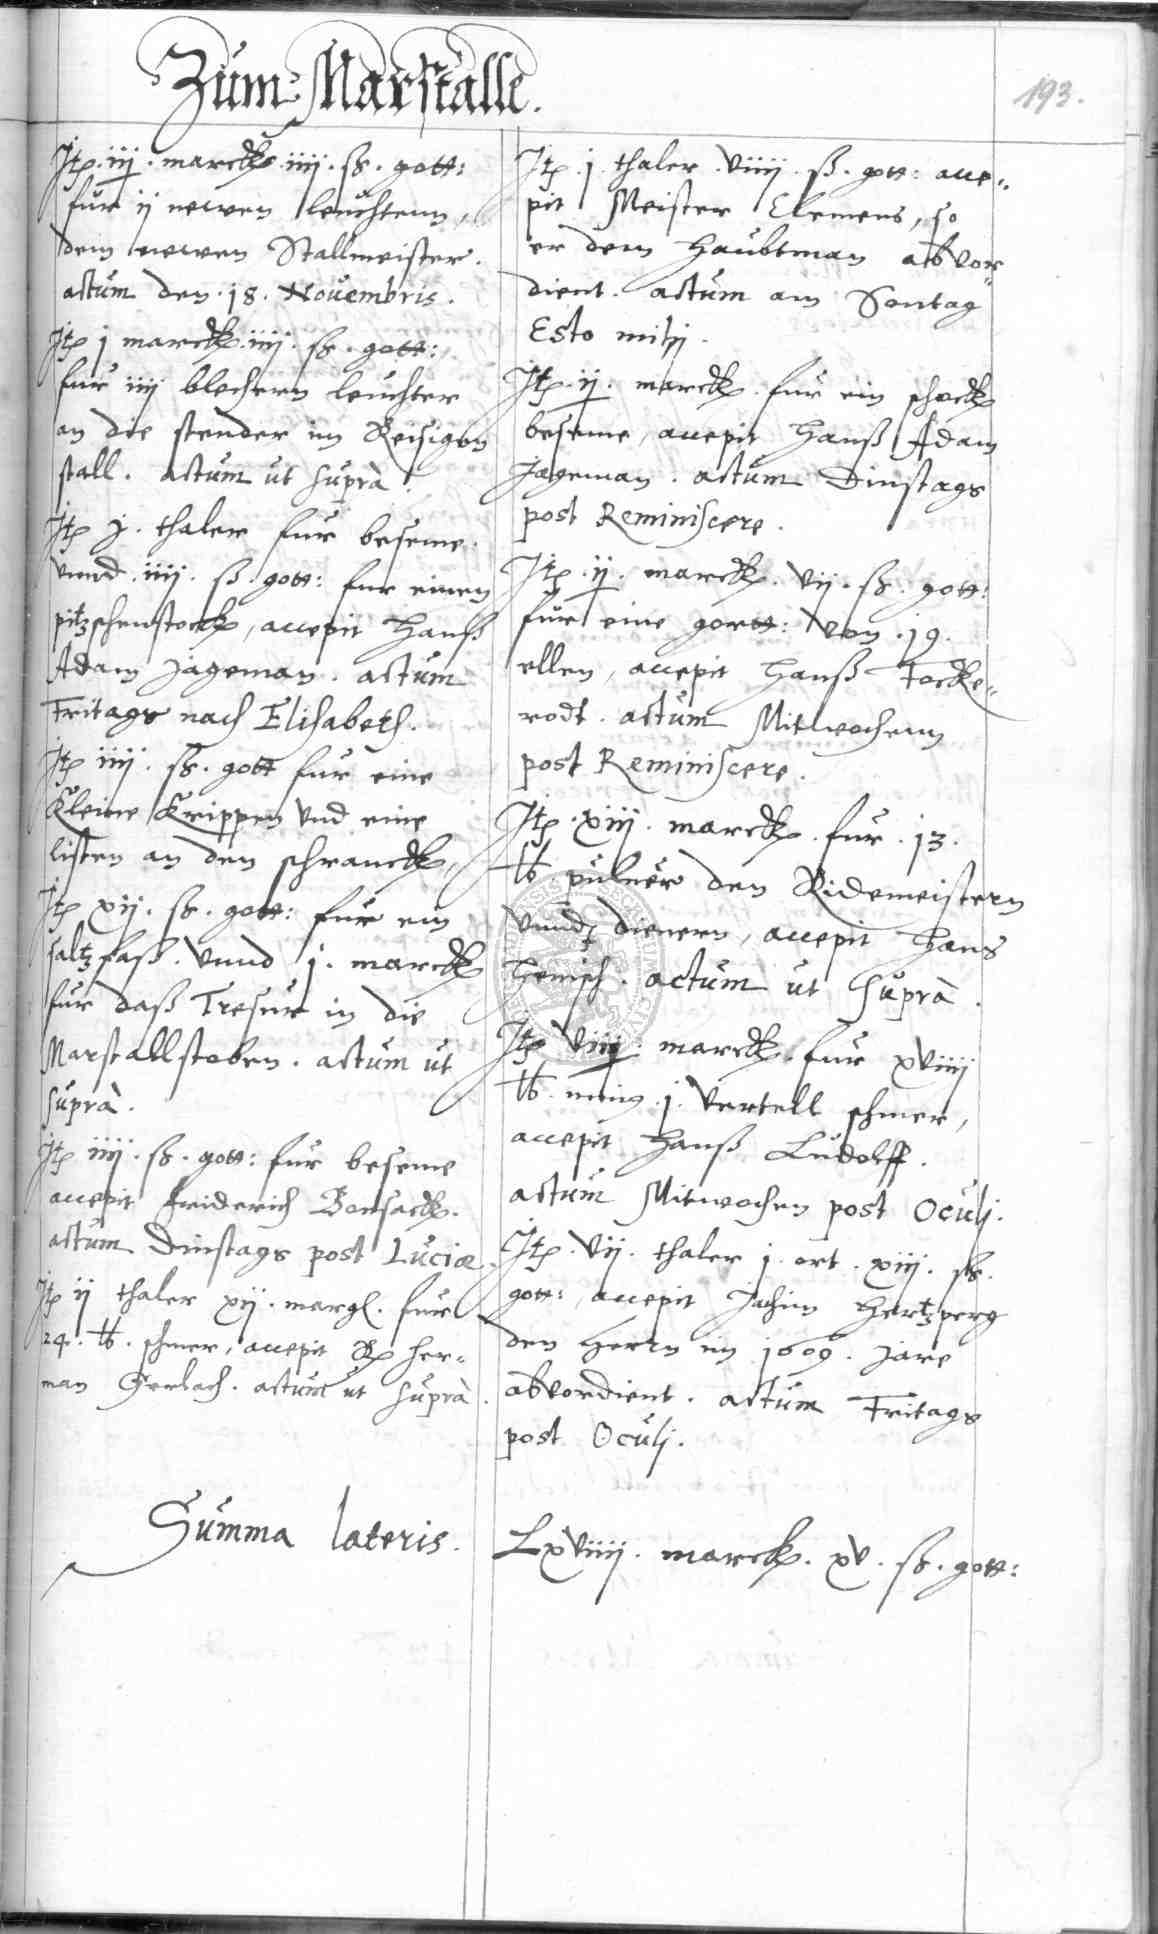 Zum Marstalle.
193.
Jtem iij marck iiij ß gott:
fur ij newen leuchtenn,
dem newen Stallmeister.
actum den 18. Nouembris.
Jtem j marck iiij ß gott:
fur iiij blechern leuchter
an die stender im Reisigen
stall. actum ut supra.
Jtem j thaler fur beseme
vnnd iiij ß gott: fur einen
pitzschenstock, accepit Hanß
Adam Jageman. actum
Fritags nach Elisabeth.
Jtem iiij ß gott fur eine
Kleine Krippen vnd eine
listen an den schranck,
Jtem xij ß gott: fur ein
saltzfaß. vnnd j marck
fur daß Tresur in die
Marstallstoben. actum ut
supra.
Jtem iiij ß gott: fur beseme
accepit Friderich Bonsack.
actum Dinstags post Luciæ.
Jtem ij thaler xij margl. fur
24 lb schmer, accepit Her=
man Gerlach. actum ut supra.
Jtem j thaler viiij ß gott: acce=
pit Meister Clemens, so
er dem Haubtman abvor
dient. actum am Sontag
Esto mihi.
Jtem ij marck fur ein schock
beseme, accepit Hanß Adam
Jageman. actum Dinstags
post Reminiscere.
Jtem ij marck vij ß gott:
fur eine gortt: von 19
ellen, accepit Hanß Focke=
rodt. actum Mitwochenn
post Reminiscere.
Jtem xiij marck fur 13
lb puluer den Ridemeistern
vnnd dienern, accepit Hans
Henisch. actum ut supra.
Jtem viiij marck fur xviiij
lb minus j vertell schmer,
accepit Hanß Ludolff.
actum Mitwochen post Oculj.
Jtem vij thaler j ort xiij ß
gott: accepit Jachim Hertzperg
den Herrn im 1609. jare
abvordient. actum Fritags
post Oculj.
Summa lateris. Lxviiij marck xv ß gott: